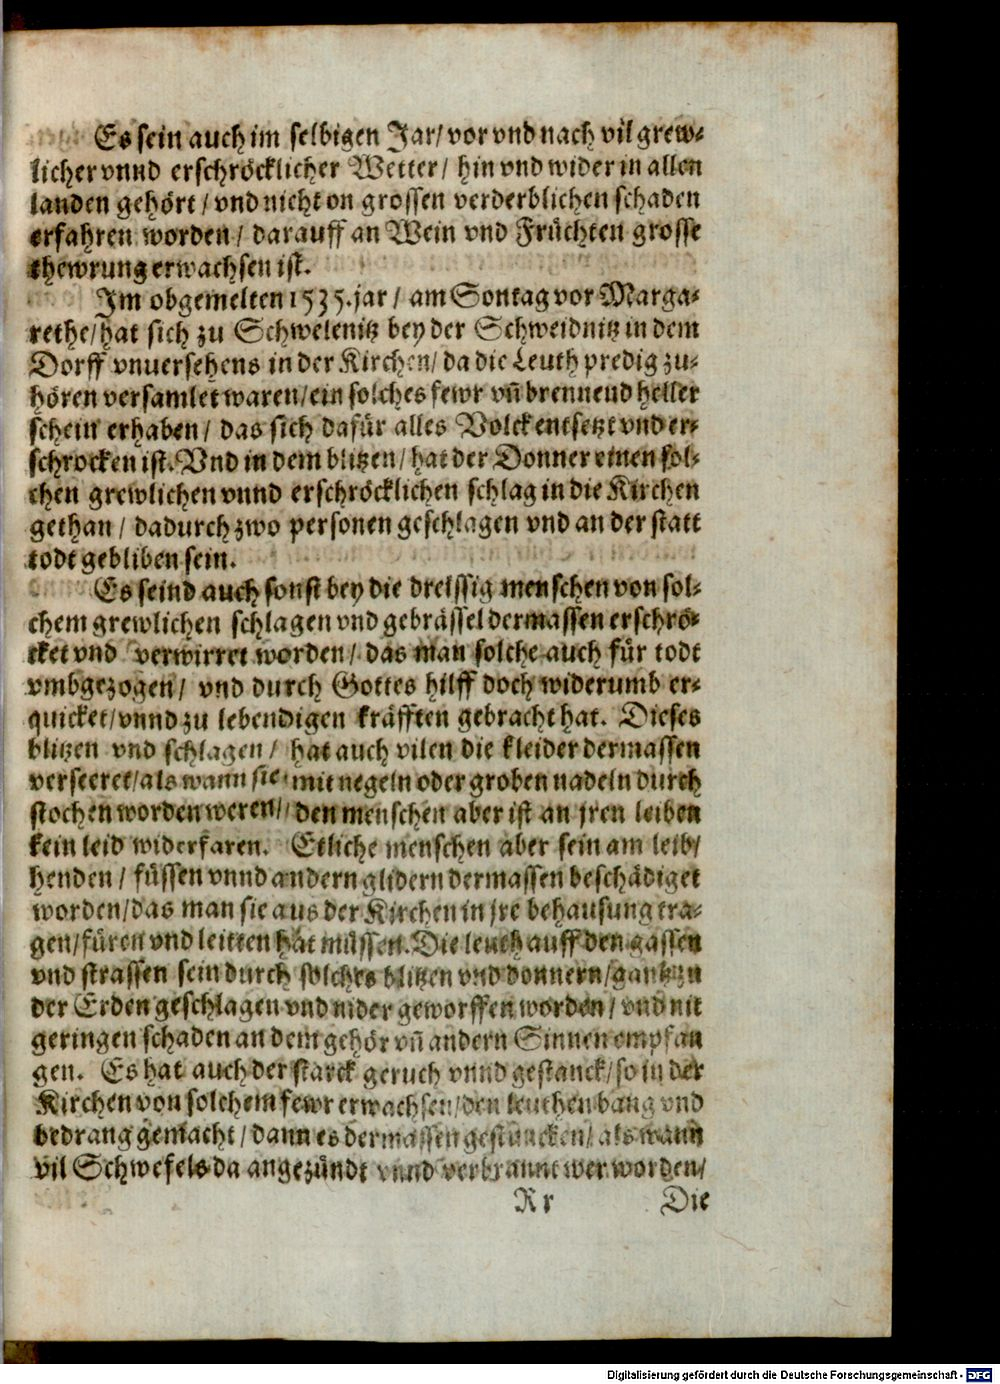 Es sein auch im selbigen Jar/ vor vnd nach vil grew⸗
licher vnnd erschröcklicher Wetter/ hin vnd wider in allen
landen gehört/ vnd nicht on grossen verderblichen schaden
erfahren worden/ darauff an Wein vnd Früchten grosse
thewrung erwachsen ist.
Im obgemelten 1535. jar/ am Sontag vor Marga⸗
rethe/ hat sich zu Schwelenitz bey der Schweidnitz in dem
Dorff vnuersehens in der Kirchen/ da die Leuth predig zu⸗
hören versamlet waren/ ein solches fewr vñ brennend heller
schein erhaben/ das sich dafür alles Volck entsetzt vnd er⸗
schrocken ist. Vnd in dem blitzen/ hat der Donner einen sol⸗
chen grewlichen vnnd erschröcklichen schlag in die Kirchen
gethan/ dadurch zwo personen geschlagen vnd an der statt
todt gebliben sein.
Es seind auch sonst bey die dreissig menschen von sol⸗
chem grewlichen schlagen vnd gebrässel dermassen erschrö⸗
cket vnd verwirret worden/ das man solche auch für todt
vmbgezogen/ vnd durch Gottes hilff doch widerumb er⸗
quicket/ vnnd zu lebendigen kräfften gebracht hat. Dieses
blitzen vnd schlagen/ hat auch vilen die kleider dermassen
verseeret/ als wann sie mit negeln oder groben nadeln durch
stochen worden weren/ den menschen aber ist an jren leiben
kein leid widerfaren. Etliche menschen aber sein am leib/
henden/ füssen vnnd andern glidern dermassen beschädiget
worden/ das man sie aus der Kirchen in jre behausung tra⸗
gen/ füren vnd leitten hat müssen. Die leuth auff den gassen
vnd strassen sein durch solches blitzen vnd donnern/ gantz zu
der Erden geschlagen vnd nider geworffen worden/ vnd nit
geringen schaden an dem gehör vñ andern Sinnen empfan
gen. Es hat auch der starck geruch vnnd gestanck/ so in der
Kirchen von solchem fewr erwachsen/ den leuthen bang vnd
bedrang gemacht/ dann es dermassen gestuncken/ als wann
vil Schwefels da angezündt vnnd verbrannt wer worden/
Rr Die
Digitalisierung gefördert durch die Deutsche Forschungsgemeinschaft - DFG